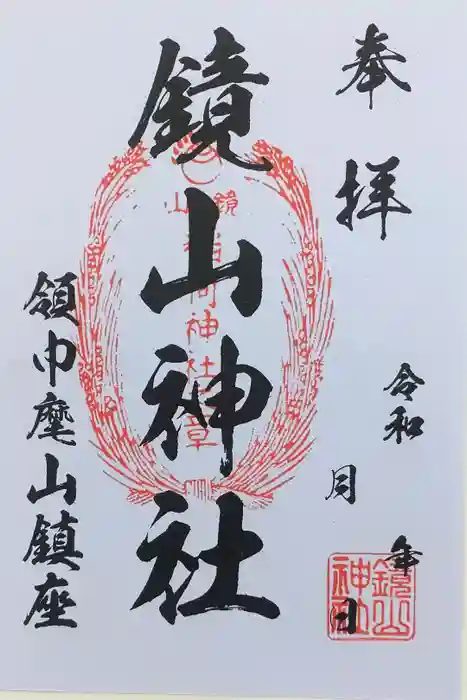 奉拝
令和 年
月 日
鏡山神社
鏡山
稲荷神社
章
領巾麾山鎮座
鏡山
神社